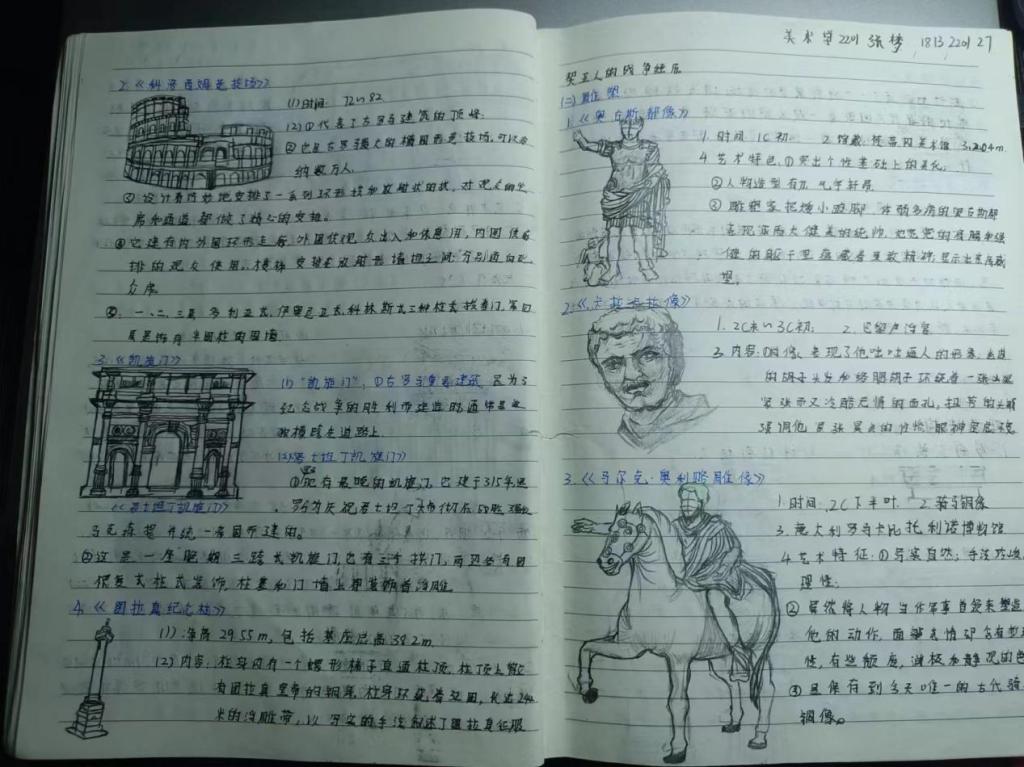 2.《科洛西姆竞技场》
(1)时间: 72~82
(2)①代表了古罗马建筑的顶峰.
②也是古罗马最大的椭圆形竞技场,可以容
纳数万人.
③设计者巧妙地安排了一系列环形拱和放射状的拱,对观众的坐
席和通道都做了精心的安排。
④它建有内外圈环形走廊,外圈供观众出入和休息用,内圈供前
排的观众使用。楼梯安装在放射形墙垣之间,分别通向观
众席.
⑤.一、二、三层多利亚式、伊奥尼亚式、科林斯式三种柱式拱券门,第四
层是饰有半圆柱的围墙
3.《凯旋门》
(1)"凯旋门",①古罗马重要建筑,是为了
纪念战争的胜利而建造的.通常是
横跨在道路上.
(2)《君士坦丁凯旋门》
①罗马最晚的凯旋门,它建于315年,是
罗马为庆祝君士坦丁大帝彻底战胜强敌
马克森提并统一帝国而建的。
②这是一座晚期三跨式凯旋门,它有三个拱门,两边各有四
根复式柱式装饰,柱基和门墙上都装饰着浮雕.
4.《图拉真纪念柱》
(1)净高29.55m,包括基座总高38.2m.
(2)内容:柱身内有一个螺形梯子直通柱顶,柱顶上
有图拉真皇帝的铜像.柱身环绕着
米的浮雕带,以写实的手法叙述了图拉真征服
美术学2201 张梦 1813220127
契亚人的战争经历
(二)雕塑
1.《奥古斯都像》
1.时间:1C初. 2.馆藏:梵蒂冈美术馆 3.2.04m.
4.艺术特色:①突出个性基础上的美化;
②人物造型有力,气宇轩昂
③雕塑家把矮小跛脚、体弱多病的奥古斯都
表现为高大健美的统帅,他宽宽的肩膀和强
健的躯干里蕴藏着勇敢精神,显示出其高威
望.
2.《卡拉卡拉像》
1. 2C末~3C初. 2.巴黎卢浮宫
3.内容:①肖像,表现了他咄咄逼人的形象,
的胡子头发和络腮胡子环绕着一张
紧张而又冷酷无情的面孔,扭劳的头颅
强调他嚣张
3.《马尔克·奥利略雕像》
1.时间:2C下半叶. 2.骑马铜像
3.意大利罗马卡比托利诺博物馆
4.艺术特征:①写实自然,手法
理性;
②虽然将人物当作军事首领来塑造
他的动作,面部表情却含有
性,有些颓废、消极和静观的色
③是保存到今天唯一的古代骑
铜像。